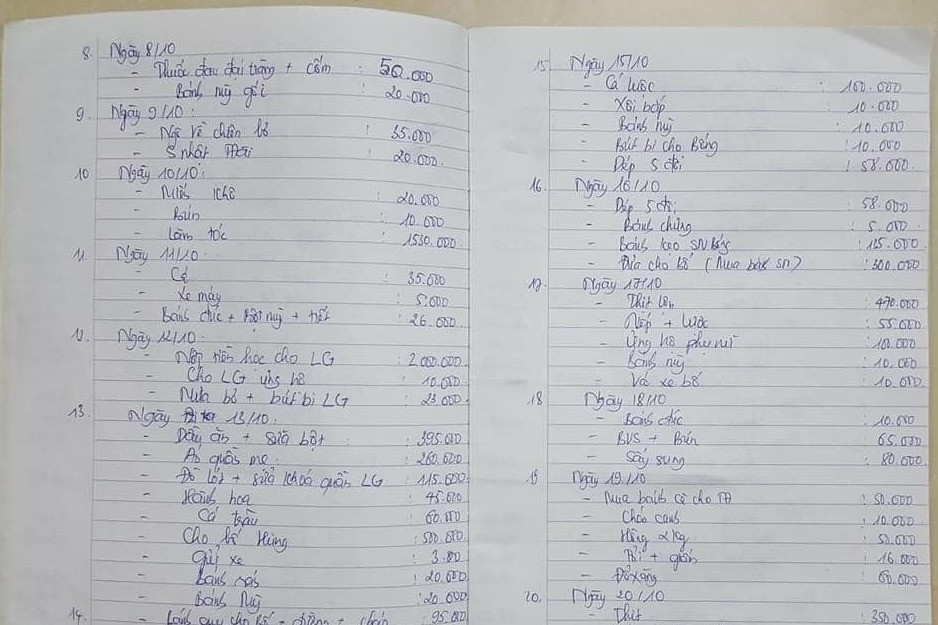 8. Ngày 8/10
- Thuốc đau đại tràng + cốm : 50.000
- Bánh mỳ gối : 20.000
9. Ngày 9/10 :
- Ngô về chiên bơ : 35.000
- S nhật : 20.000
10 Ngày 10/10 :
- Miến khô : 20.000
- Bún : 10.000
- Làm tóc : 1530.000
11. Ngày 11/10 :
- Cá : 35.000
- Xe máy : 5.000
- Bánh đúc + + tiết : 26.000
12. Ngày 12/10 :
- Nộp tiền học cho LG : 2.000.000
- Cho LG ủng hộ : 10.000
- Mua bơ + bút bi LG : 23.000
13. Ngày 13/10.
- Dầu ăn + sữa bột : 395.000
- Áo quần mẹ : 260.000
- Đồ lót + sửa khoá quần LG : 115.000
- Hành hoa : 45.000
- Cá trầu : 60.000
- Cho bố Hùng : 500.000
- Gửi xe : 3.000
- Bánh : 20.000
- Bánh Mỳ : 20.000
14. - Bánh cho bố + + : 95.000
15 Ngày 15/10
- Cá luộc : 100.000
- Xôi bắp : 10.000
- Bánh mỳ : 10.000
- Bút bi cho Bống : 10.000
- Dép 5 đôi : 58.000
16. Ngày 16/10
- Dép 5 đôi : 58.000
- Bánh chưng : 5.000
- Bánh kẹo SN Bống : 125.000
- Đưa cho bố (Mua bánh SN) : 300.000
17. Ngày 17/10
- Thịt lợn : 470.000
- Nếp + lước : 55.000
- Ủng hộ phụ nữ : 100.000
- Bánh mỳ : 10.000
- Vá xe bố : 10.000
18 Ngày 18/10
- Bánh đúc : 10.000
- BVS + Bún : 65.000
- Sấy sung : 80.000
19 Ngày 19/10
- Mua bánh cô cho : 50.000
- Cháo canh : 10.000
- Hồng 2kg : 50.000
- + giấm : 16.000
- Đổ xăng : 60.000
20. Ngày 20/10
- Thịt : 350.000